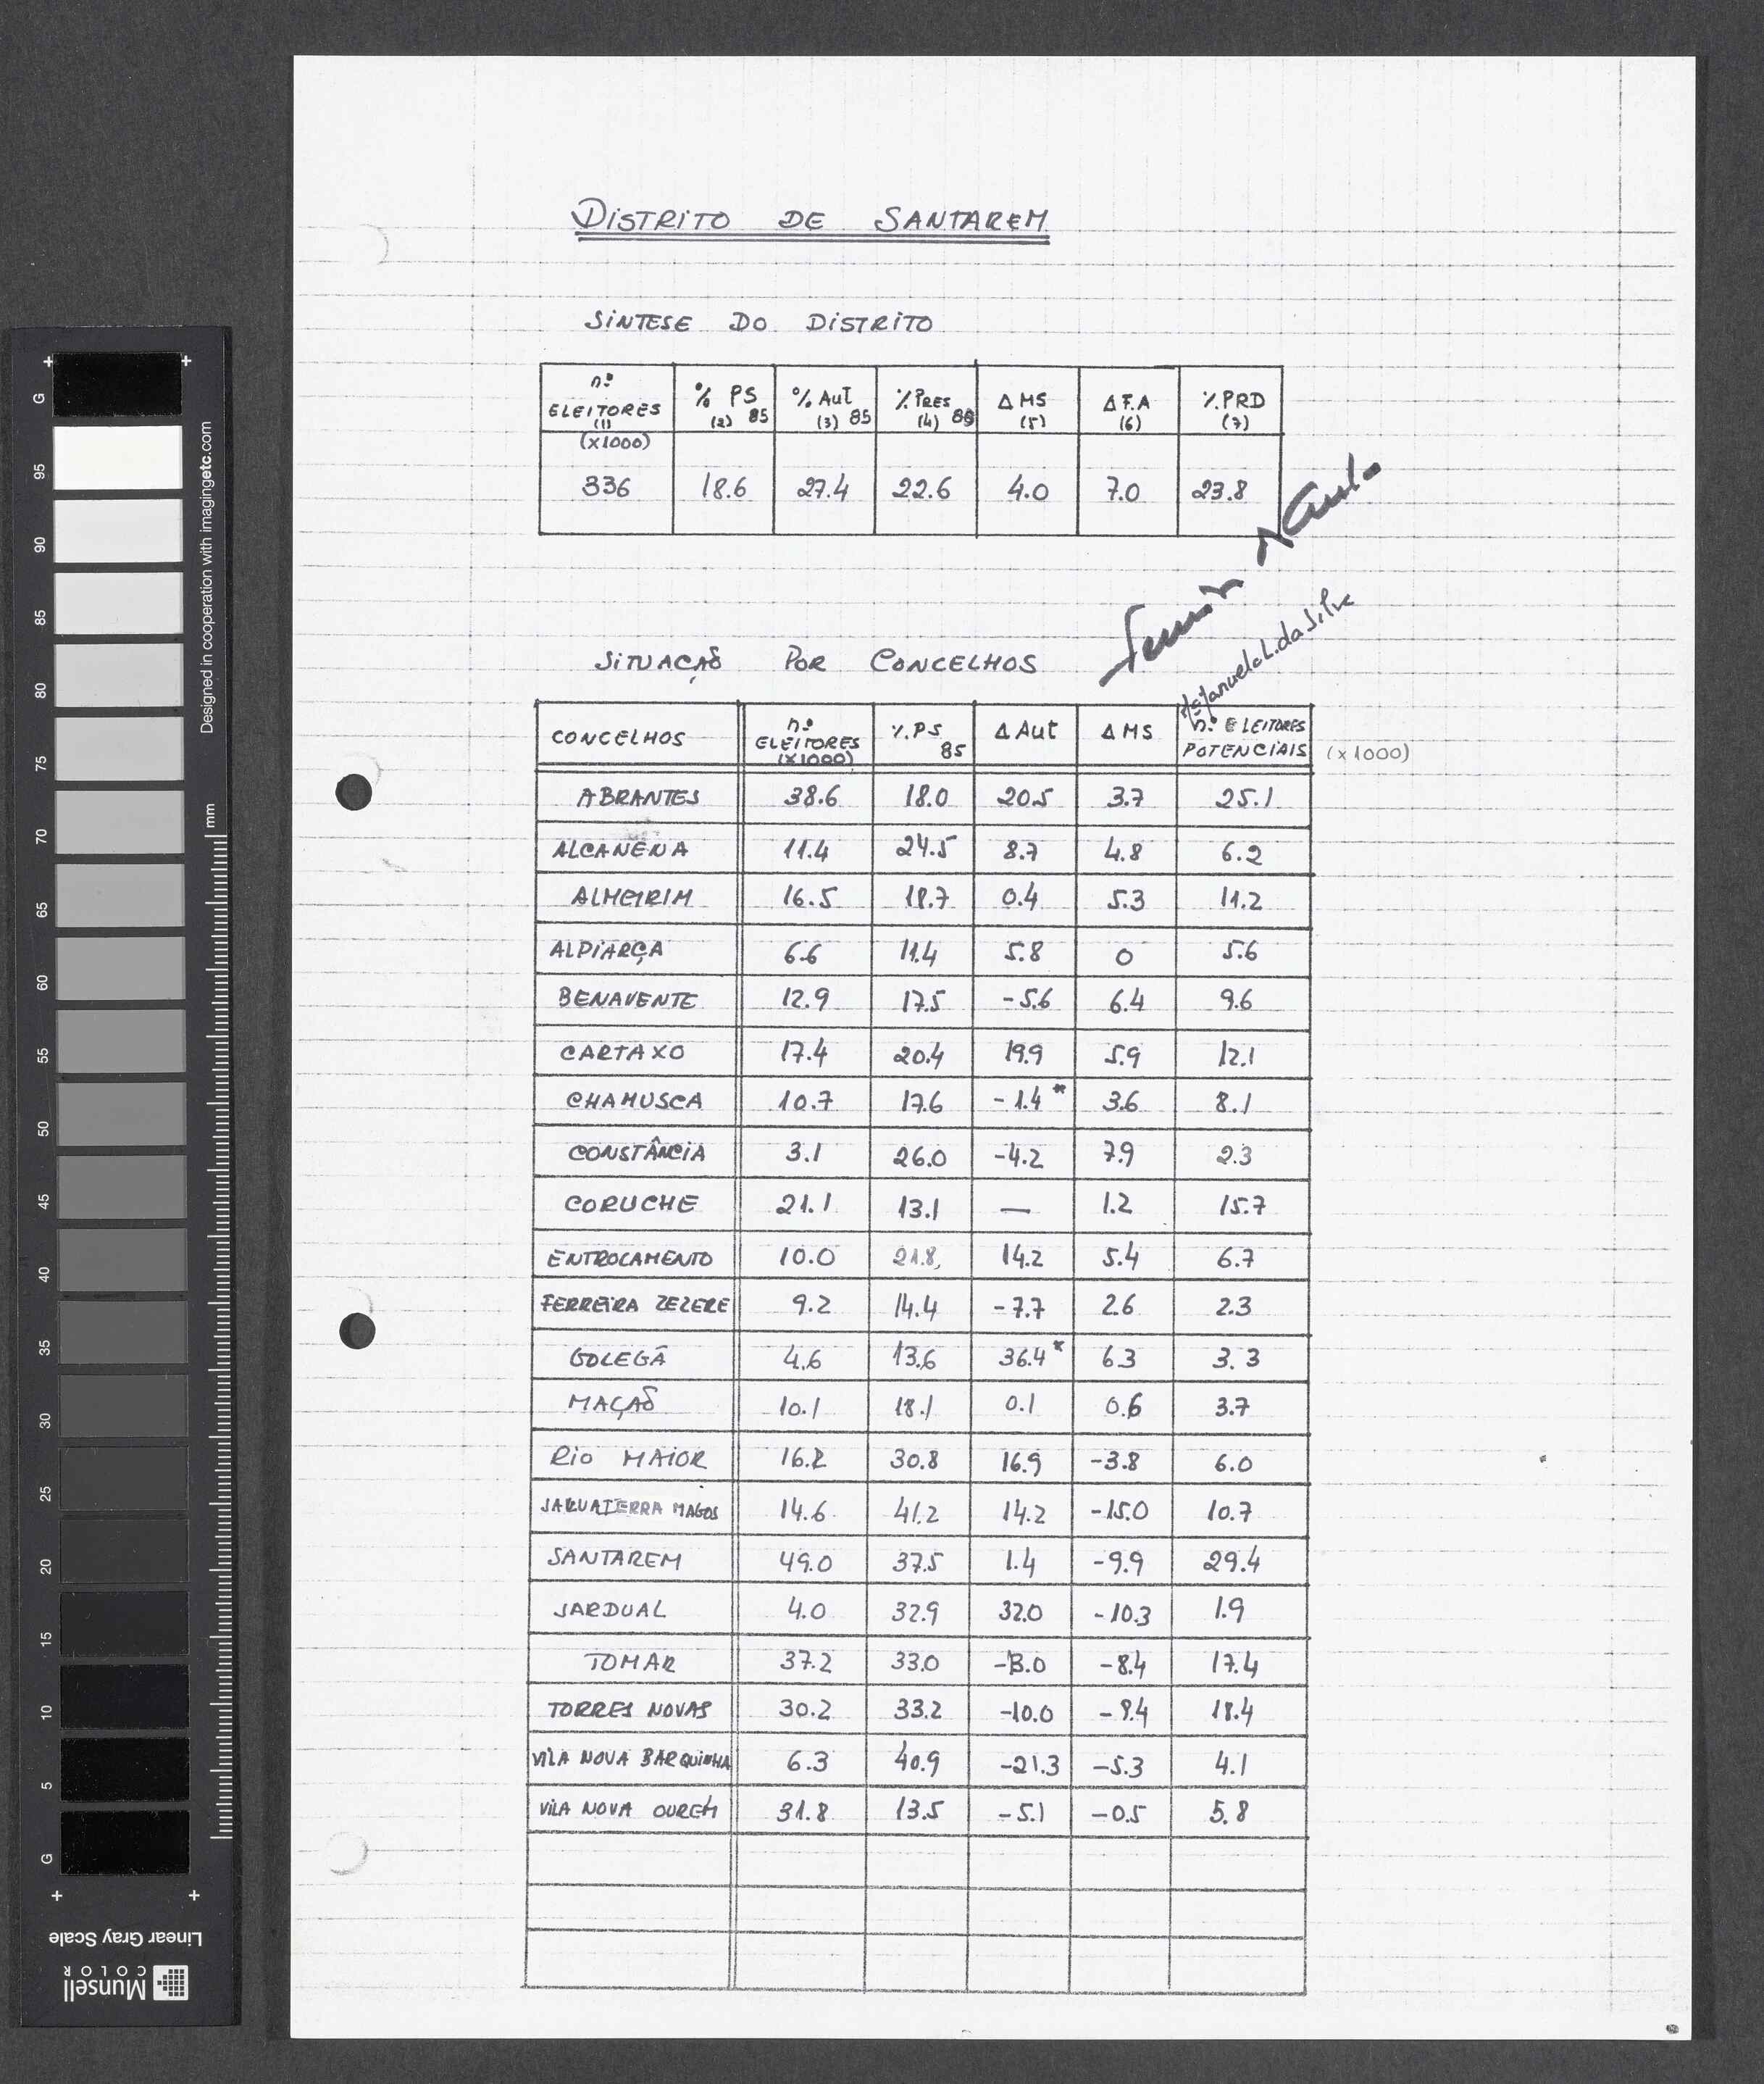 DISTRITO DE SANTAREM
SINTESE DO DISTRITO
nº ELEITORES (1) % PS 85 (2) % Aut 85 (3) % PRES 86 (4) Δ MS (5) Δ F.A (6) % PRD (7)
(x1000)
336 18.6 27.4 22.6 4.0 7.0 23.8
Manuel L. da Silva
SITUAÇÃO POR CONCELHOS
CONCELHOS nº ELEITORES (x1000) % PS 85 Δ Aut Δ MS nº ELEITORES POTENCIAIS (x1000)
ABRANTES 38.6 18.0 20.5 3.7 25.1
ALCANENA 11.4 24.5 8.7 4.8 6.2
ALMEIRIM 16.5 18.7 0.4 5.3 11.2
ALPIARÇA 6.6 11.4 5.8 0 5.6
BENAVENTE 12.9 17.5 -5.6 6.4 9.6
CARTAXO 17.4 20.4 19.9 5.9 12.1
CHAMUSCA 10.7 17.6 -1.4* 3.6 8.1
CONSTÂNCIA 3.1 26.0 -4.2 7.9 2.3
CORUCHE 21.1 13.1 — 1.2 15.7
ENTROCAMENTO 10.0 21.8 14.2 5.4 6.7
FERREIRA ZEZERE 9.2 14.4 -7.7 2.6 2.3
GOLEGÃ 4.6 13.6 36.4* 6.3 3.3
MAÇÃO 10.1 18.1 0.1 0.6 3.7
RIO MAIOR 16.2 30.8 16.9 -3.8 6.0
SALVATERRA MAGOS 14.6 41.2 14.2 -15.0 10.7
SANTAREM 49.0 37.5 1.4 -9.9 29.4
SARDUAL 4.0 32.9 32.0 -10.3 1.9
TOMAR 37.2 33.0 -3.0 -8.4 17.4
TORRES NOVAS 30.2 33.2 -10.0 -9.4 18.4
VILA NOVA BARQUINHA 6.3 40.9 -21.3 -5.3 4.1
VILA NOVA OUREM 31.8 13.5 -5.1 -0.5 5.8
G 95 90 85 80 75 70 65 60 55 50 45 40 35 30 25 20 15 10 5 G
Designed in cooperation with imagingetc.com
mm
Linear Gray Scale
Munsell
COLOR